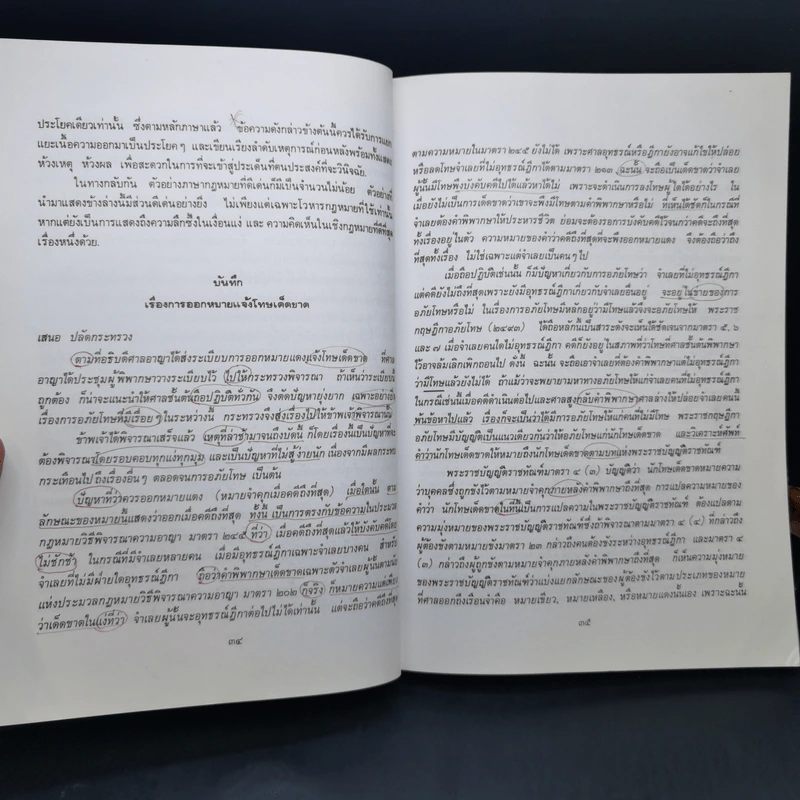 ประโยคเดียวเท่านั้น ซึ่งตามหลักภาษาแล้ว ข้อความดังกล่าวข้างต้นนี้ควรได้รับการแยก
แยะเนื้อความออกมาเป็นประโยค ๆ และเขียนเรียงลำดับเหตุการณ์ก่อนหลังพร้อมทั้งแสดง
ห้วงเหตุ ห้วงผล เพื่อสะดวกในการที่จะเข้าสู่ประเด็นที่ตนประสงค์ที่จะวินิจฉัย
ในทางกลับกัน ตัวอย่างภาษากฎหมายที่ดีเด่นก็มีเป็นจำนวนไม่น้อย ตัวอย่างที่
นำมาแสดงข้างล่างนี้มีส่วนดีเด่นอย่างยิ่ง ไม่เพียงแต่เฉพาะโวหารกฎหมายที่ใช้เท่านั้น
หากแต่ยังเป็นการแสดงถึงความลึกซึ้งในเงื่อนแง่ และความคิดเห็นในเชิงกฎหมายที่ดีที่สุด
เรื่องหนึ่งด้วย
บันทึก
เรื่องการออกหมายแจ้งโทษเด็ดขาด
เสนอ ปลัดกระทรวง
ตามที่อธิบดีศาลอาญาได้ส่งระเบียบการออกหมายแดงแจ้งโทษเด็ดขาด ที่ศาล
อาญาได้ประชุมผู้พิพากษาวางระเบียบไว้ ไปให้กระทรวงพิจารณา ถ้าเห็นว่าระเบียบนี้
ถูกต้อง ก็น่าจะแนะนำให้ศาลชั้นต้นถือปฏิบัติทั่วกัน จึงตัดปัญหายุ่งยาก เฉพาะอย่างยิ่ง
เรื่องการอภัยโทษที่มีเรื่อย ๆ ในระหว่างนี้ กระทรวงจึงส่งเรื่องไปให้ข้าพเจ้าพิจารณานั้น
ข้าพเจ้าได้พิจารณาเสร็จแล้ว เหตุที่ล่าช้ามาจนถึงบัดนี้ ก็โดยเรื่องนี้เป็นปัญหาที่จะ
ต้องพิจารณาโดยรอบคอบทุกแง่ทุกมุม และเป็นปัญหาที่ไม่สู้ง่ายนัก เนื่องจากมีผลกระทบ
กระเทือนไปถึงเรื่องอื่น ๆ ตลอดจนการอภัยโทษ เป็นต้น
ปัญหาที่ว่าควรออกหมายแดง (หมายจำคุกเมื่อคดีถึงที่สุด) เมื่อใดนั้น ตาม
ลักษณะของหมายนี้แสดงว่าออกเมื่อคดีถึงที่สุด ทั้งนี้ เป็นการตรงกับข้อความในประมวล
กฎหมายวิธีพิจารณาความอาญา มาตรา ๒๔๕ ที่ว่า เมื่อคดีถึงที่สุดแล้วให้บังคับคดีโดย
ไม่ชักช้า ในกรณีที่มีจำเลยหลายคน เมื่อมีอุทธรณ์ฎีกาเฉพาะจำเลยบางคน สำหรับ
จำเลยที่ไม่มีฝ่ายใดอุทธรณ์ฎีกา ถือว่าคำพิพากษาเด็ดขาดเฉพาะตัวจำเลยผู้นั้นตามนัย
แห่งประมวลกฎหมายวิธีพิจารณาความอาญา มาตรา ๒๐๒ ก็จริง ก็หมายความแต่เพียง
ว่าเด็ดขาดในแง่ที่ว่า จำเลยผู้นั้นจะอุทธรณ์ฎีกาต่อไปไม่ได้เท่านั้น แต่จะถือว่าคดีถึงที่สุด
๓๔
ตามความหมายในมาตรา ๒๔๕ ยังไม่ได้ เพราะศาลอุทธรณ์หรือฎีกายังอาจแก้ไขให้ปล่อย
หรือลดโทษจำเลยที่ไม่อุทธรณ์ฎีกาได้ตามมาตรา ๒๑๓ ฉะนั้น จะถือเป็นเด็ดขาดว่าจำเลย
ผู้นั้นมีโทษพึงบังคับคดีไปได้แล้วหาได้ไม่ เพราะจะดำเนินการลงโทษผู้ใดได้อย่างไร ใน
เมื่อยังไม่เป็นการเด็ดขาดว่าเขาจะพึงมีโทษตามคำพิพากษาหรือไม่ ที่เห็นได้ชัดก็ในกรณีที่
จำเลยต้องคำพิพากษาให้ประหารชีวิต ย่อมจะต้องรอการบังคับคดีไว้จนกว่าคดีจะถึงที่สุด
ทั้งเรื่องอยู่ในตัว ความหมายของคำว่าคดีถึงที่สุดที่จะพึงออกหมายแดง จึงต้องถือว่าถึง
ที่สุดทั้งเรื่อง ไม่ใช่เฉพาะแต่จำเลยเป็นคน ๆ ไป
เมื่อถือปฏิบัติเช่นนั้น ก็มีปัญหาเกี่ยวกับการอภัยโทษว่า จำเลยที่ไม่อุทธรณ์ฎีกา
แต่คดียังไม่ถึงที่สุดเพราะยังมีอุทธรณ์ฎีกาเกี่ยวกับจำเลยอื่นอยู่ จะอยู่ในข่ายของการ
อภัยโทษหรือไม่ ในเรื่องการอภัยโทษมีหลักอยู่ว่ามีโทษแล้วจึงจะอภัยโทษให้ พระราช
กฤษฎีกาอภัยโทษ (๒๔๙๓) ได้ถือหลักนี้เป็นสาระดังจะเห็นได้ชัดเจนจากมาตรา ๕, ๖
และ ๗ เมื่อจำเลยคนใดไม่อุทธรณ์ฎีกา คดีก็ยังอยู่ในสภาพที่ว่าโทษที่ศาลชั้นต้นพิพากษา
ไว้อาจล้มเลิกเพิกถอนไป ดั่งนี้ ฉะนั้น จะถือเอาจำเลยที่ต้องคำพิพากษาแต่ไม่อุทธรณ์ฎีกา
ว่ามีโทษแล้วยังไม่ได้ ถ้าแม้ว่าจะพยายามหาทางอภัยโทษให้แก่จำเลยที่ไม่อุทธรณ์ฎีกา
ในกรณีเช่นนี้เมื่อคดีดำเนินต่อไปและศาลสูงกลับคำพิพากษาศาลล่างให้ปล่อยจำเลยจน
พ้นข้อหาไปแล้ว เรื่องก็จะเป็นว่าได้มีการอภัยโทษให้แก่คนที่ไม่มีโทษ พระราชกฤษฎีกา
อภัยโทษมีบัญญัติเป็นแนวเดียวกันว่าให้อภัยโทษแก่นักโทษเด็ดขาด และวิเคราะห์ศัพท์
คำว่านักโทษเด็ดขาดให้หมายถึงนักโทษเด็ดขาดตามบทแห่งพระราชบัญญัติราชทัณฑ์
พระราชบัญญัติราชทัณฑ์มาตรา ๔ (๓) บัญญัติว่า นักโทษเด็ดขาดหมายความ
ว่าบุคคลซึ่งถูกขังไว้ตามหมายจำคุกภายหลังคำพิพากษาถึงที่สุด การแปลความหมายของ
คำว่า นักโทษเด็ดขาดในที่นี้เป็นการแปลความในพระราชบัญญัติราชทัณฑ์ ต้องแปลตาม
ความมุ่งหมายของพระราชบัญญัติราชทัณฑ์ซึ่งถ้าพิจารณาตามมาตรา ๔ (๔) ที่กล่าวถึง
ผู้ต้องขังตามหมายขังมาตรา ๒๓ กล่าวถึงคนต้องขังระหว่างอุทธรณ์ฎีกา และมาตรา ๔
(๓) กล่าวถึงผู้ถูกขังตามหมายจำคุกภายหลังคำพิพากษาถึงที่สุด ก็เห็นความมุ่งหมาย
ของพระราชบัญญัติราชทัณฑ์ว่าแบ่งแยกลักษณะของผู้ต้องขังไว้ตามประเภทของหมาย
ที่ศาลออกถึงเรือนจำคือ หมายเขียว, หมายเหลือง, หรือหมายแดงนั่นเอง เพราะฉะนั้น
๓๕